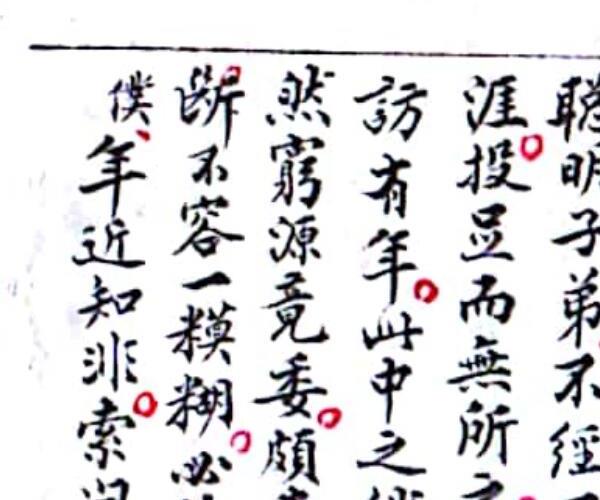 聰明子弟不經
涯投足而無所
訪有年此中之
然窮源竟委頗
斷不容一糢糊必
僕年近知非索